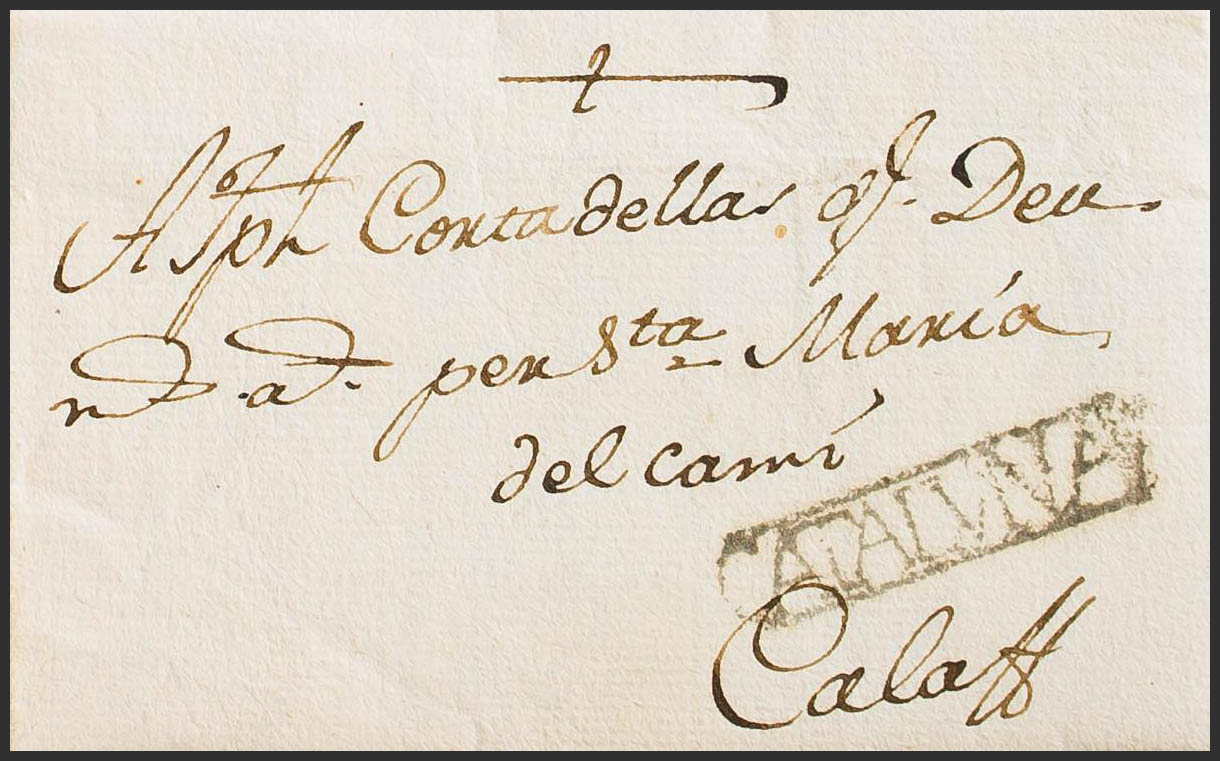 A Jph Cortadellas q.e Deu
m.s a.s per Sta María
del camí
CATALUÑA
Calaff